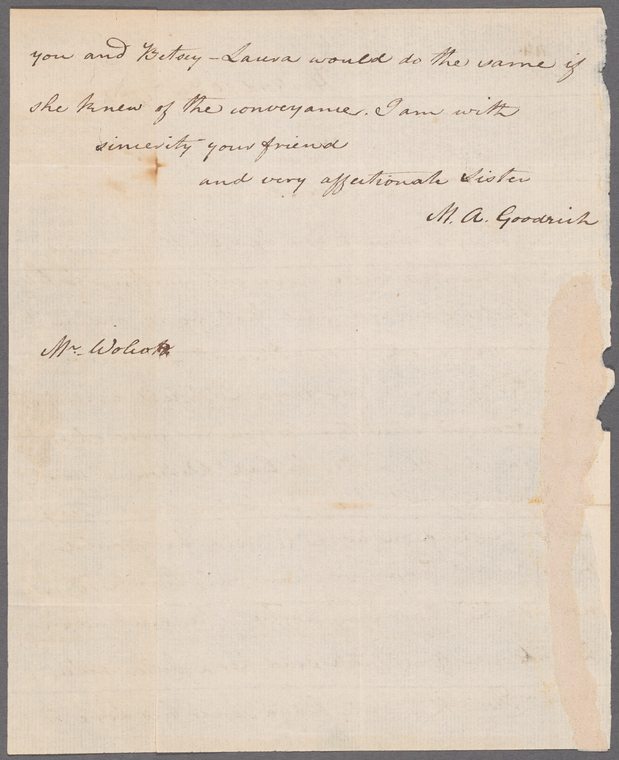 you and Betsey – Laura would do the same if
she knew of the conveyance. I am with
sincerity your friend
and very affectionate Sister
M. A. Goodrich
Mr. Wolcott